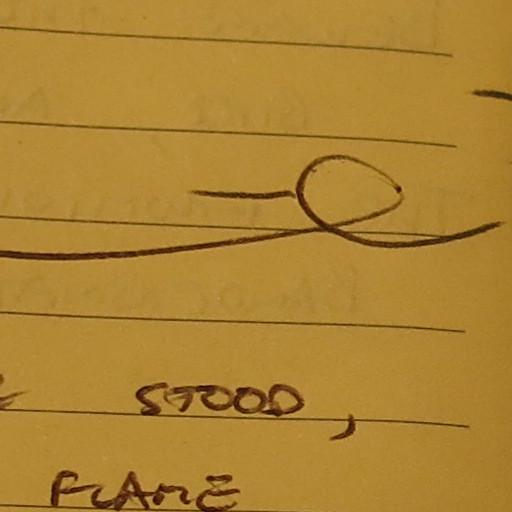 STOOD,
FLAME